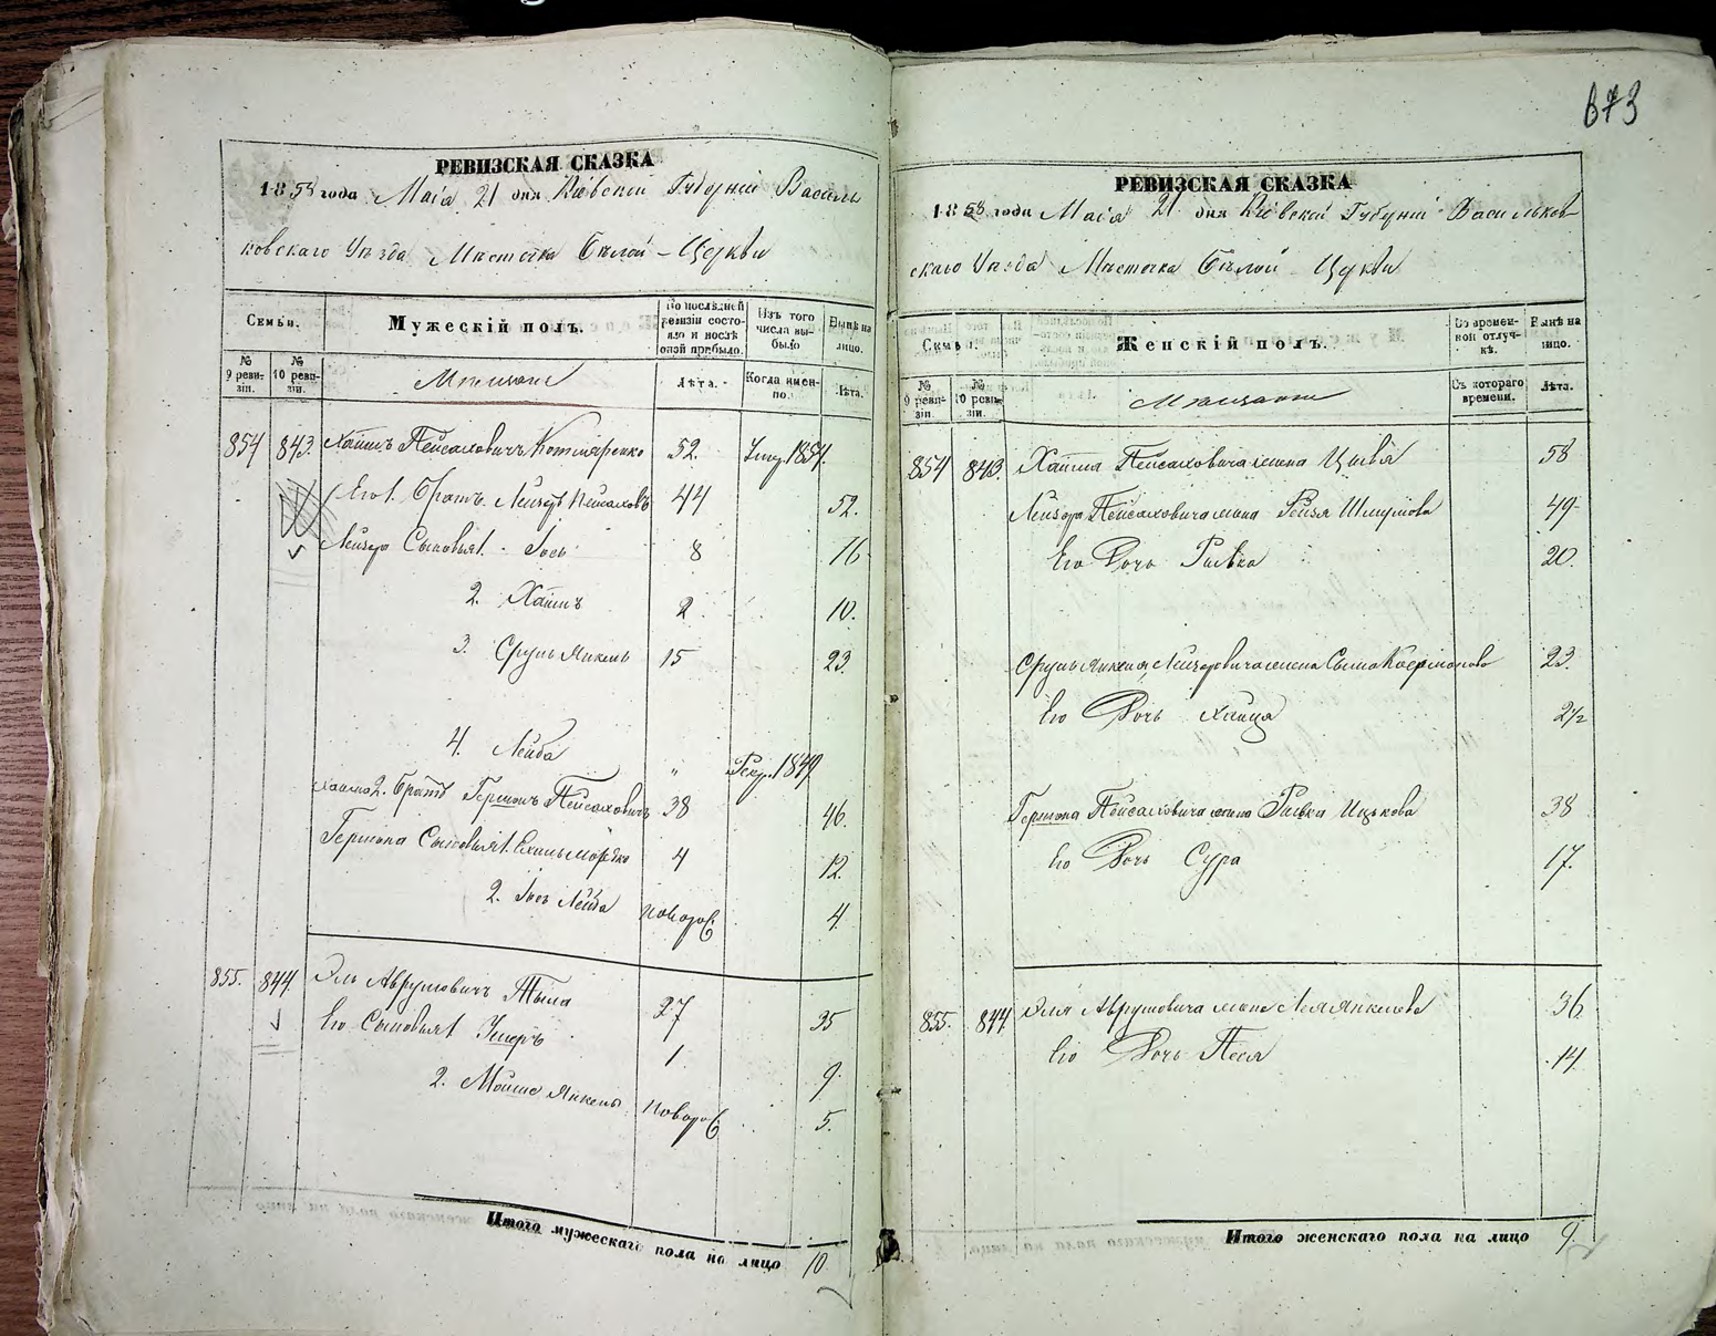 673
РЕВИЗСКАЯ СКАЗКА
1858 года Маія 21 дня Кіевской Губерніи Василь
ковскаго Уѣзда Мѣстечка Бѣлой-Церкви
Семьи.
Мужескій полъ.
По послѣдней ревизіи состояло и послѣ оной прибыло.
Изъ того числа выбыло
Нынѣ на лицо.
№ 9 ревизіи.
№ 10 ревизіи.
Мѣщане
Лѣта.
Когда именно.
Лѣта.
854 843. Хаимъ Пейсаховичъ Котляренко 52. Умер. 1854.
Его 1. Братъ Лейзоръ Пейсаховъ 44 52.
Лейзера Сыновья 1. Іось 8 16
2. Хаимъ 2 10.
3. Сруль Янкель 15 23.
4. Лейба " Рекр. 1849
Хаима 2. Братъ Гершонъ Пейсаховичъ 38 46.
Гершона Сыновья 1. Мордко 4 12.
2. Іось Лейба новорож 4.
855. 844. Эль Аврумовичъ 27 35
Его Сыновья 1 Ушеръ 1. 9.
2. Мойше Янкель новорож 5.
Итого мужескаго пола на лицо 10
РЕВИЗСКАЯ СКАЗКА
1858 года Маія 21 дня Кіевской Губерніи Васильков
скаго Уѣзда Мѣстечка Бѣлой Церкви
Семьи.
Женскій полъ.
Во временной отлучкѣ.
Нынѣ на лицо.
№ 9 ревизіи.
№ 10 ревизіи.
Мѣщане
Съ котораго времени.
Лѣта.
854 843. Хаима Пейсаховича жена Цывья 58
Лейзора Пейсаховича жена Рейзя Шмулiова 49
Его Дочь Рывка 20.
Сруль Янкеля Лейзеровича жена 23.
Его Дочь Хаица 2½
Гершона Пейсаховича жена Рывка Ицькова 38
Его Дочь Сура 17.
855. 844 Эля Аврумовича жена Лея Янкелева 36
Его Дочь Песя 14
Итого женскаго пола на лицо 9.